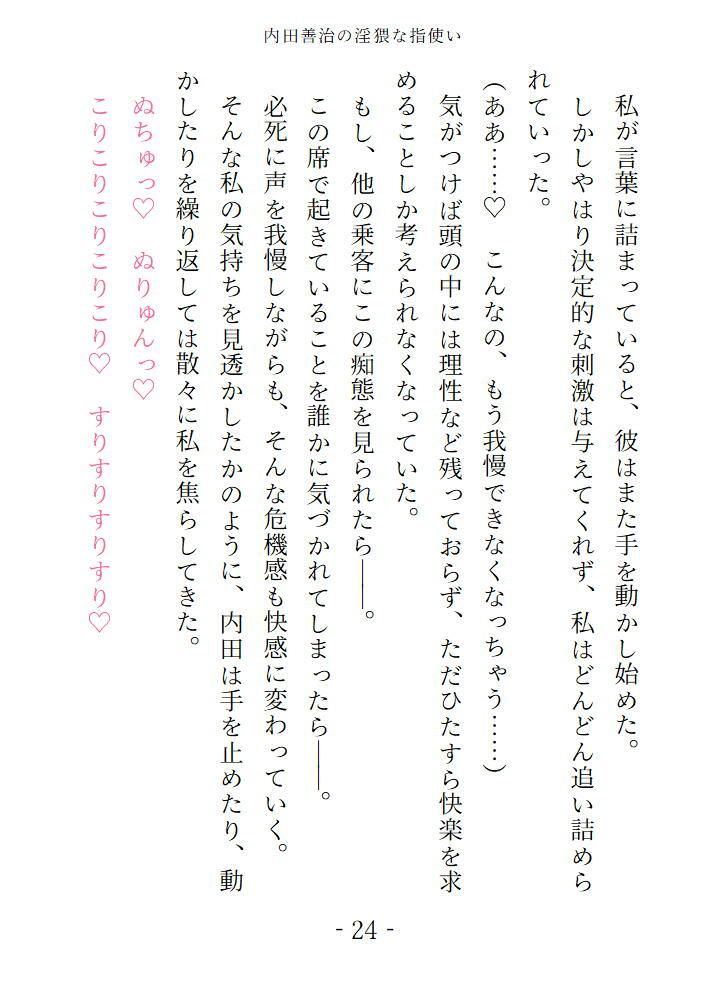 内田善治の淫猥な指使い
私が言葉に詰まっていると、彼はまた手を動かし始めた。
しかしやはり決定的な刺激は与えてくれず、私はどんどん追い詰めら
れていった。
(ああ……♡　こんなの、もう我慢できなくなっちゃう……)
気がつけば頭の中には理性など残っておらず、ただひたすら快楽を求
めることしか考えられなくなっていた。
もし、他の乗客にこの痴態を見られたら――。
この席で起きていることを誰かに気づかれてしまったら――。
必死に声を我慢しながらも、そんな危機感も快感に変わっていく。
そんな私の気持ちを見透かしたかのように、内田は手を止めたり、動
かしたりを繰り返しては散々に私を焦らしてきた。
ぬちゅっ♡　ぬりゅんっ♡
こりこりこりこりこり♡　すりすりすりすり♡
- 24 -